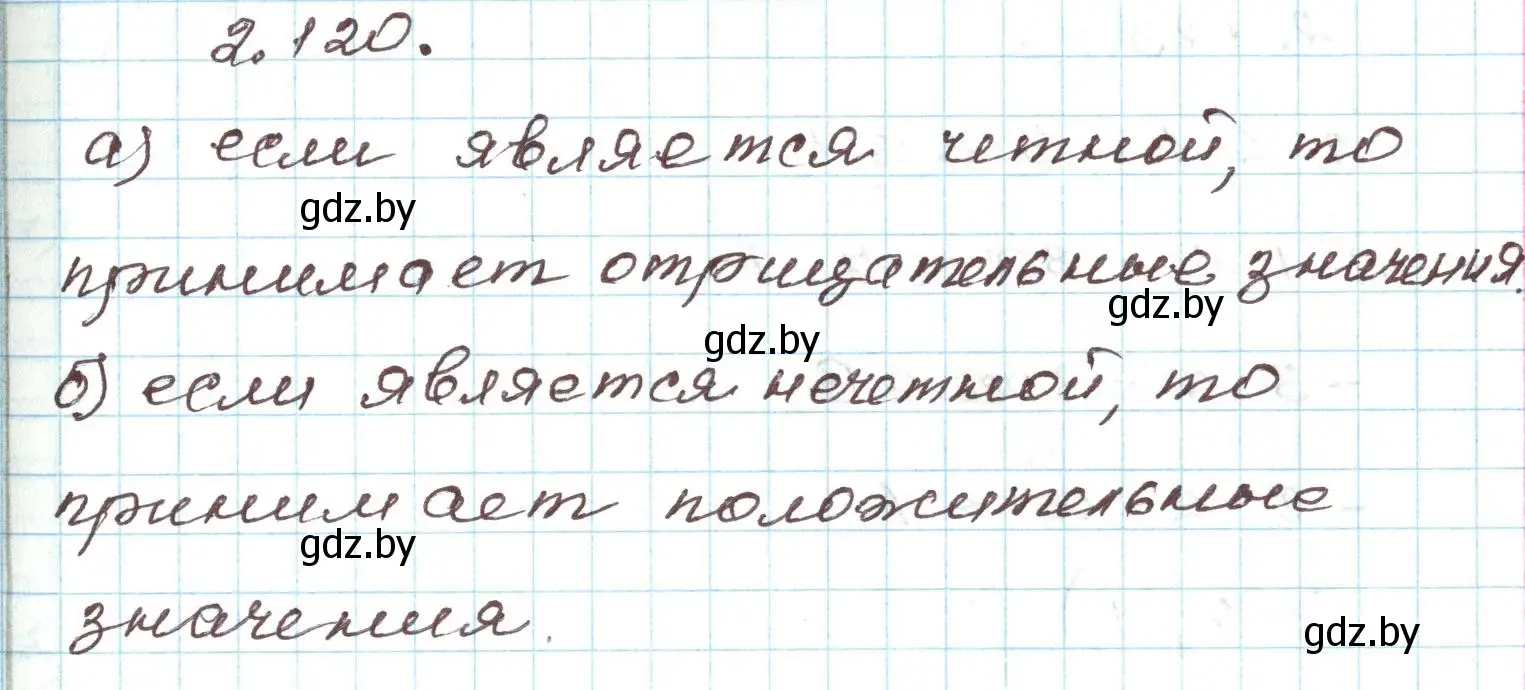 2.120.
а) если является четной, то
gdz.by
принимает отрицательные значения.
gdz.by
gdz.by
б) если является нечетной, то
принимает положительные
gdz.by
значения.
gdz.by